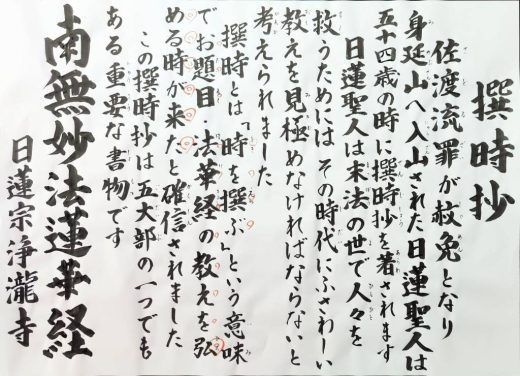 撰時抄
佐渡流罪が赦免となり
身延山へ入山された日蓮聖人は
五十四歳の時に撰時抄を著されます
日蓮聖人は末法の世で人々を
救うためには その時代にふさわしい
教えを見極めなければならないと
考えられました
撰時とは「時を撰ぶ」という意味
でお題目・法華経の教えを弘
める時が来たと確信されました
この撰時抄は五大部の一つでも
ある重要な書物です
南無妙法蓮華経
日蓮宗浄瀧寺